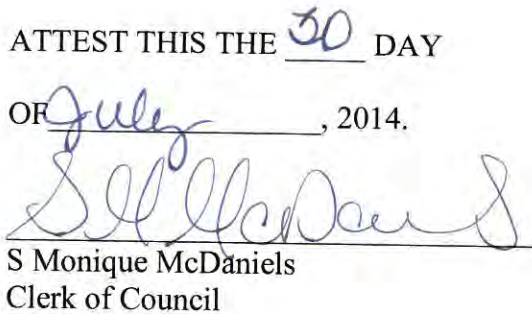 ATTEST THIS THE 30 DAY
OF July, 2014.
S M McDaniels
S Monique McDaniels
Clerk of Council